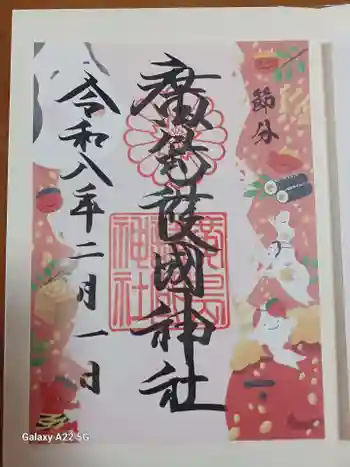 節分
廣島護國神社
令和八年二月一日
廣島護國神社
Galaxy A22 5G